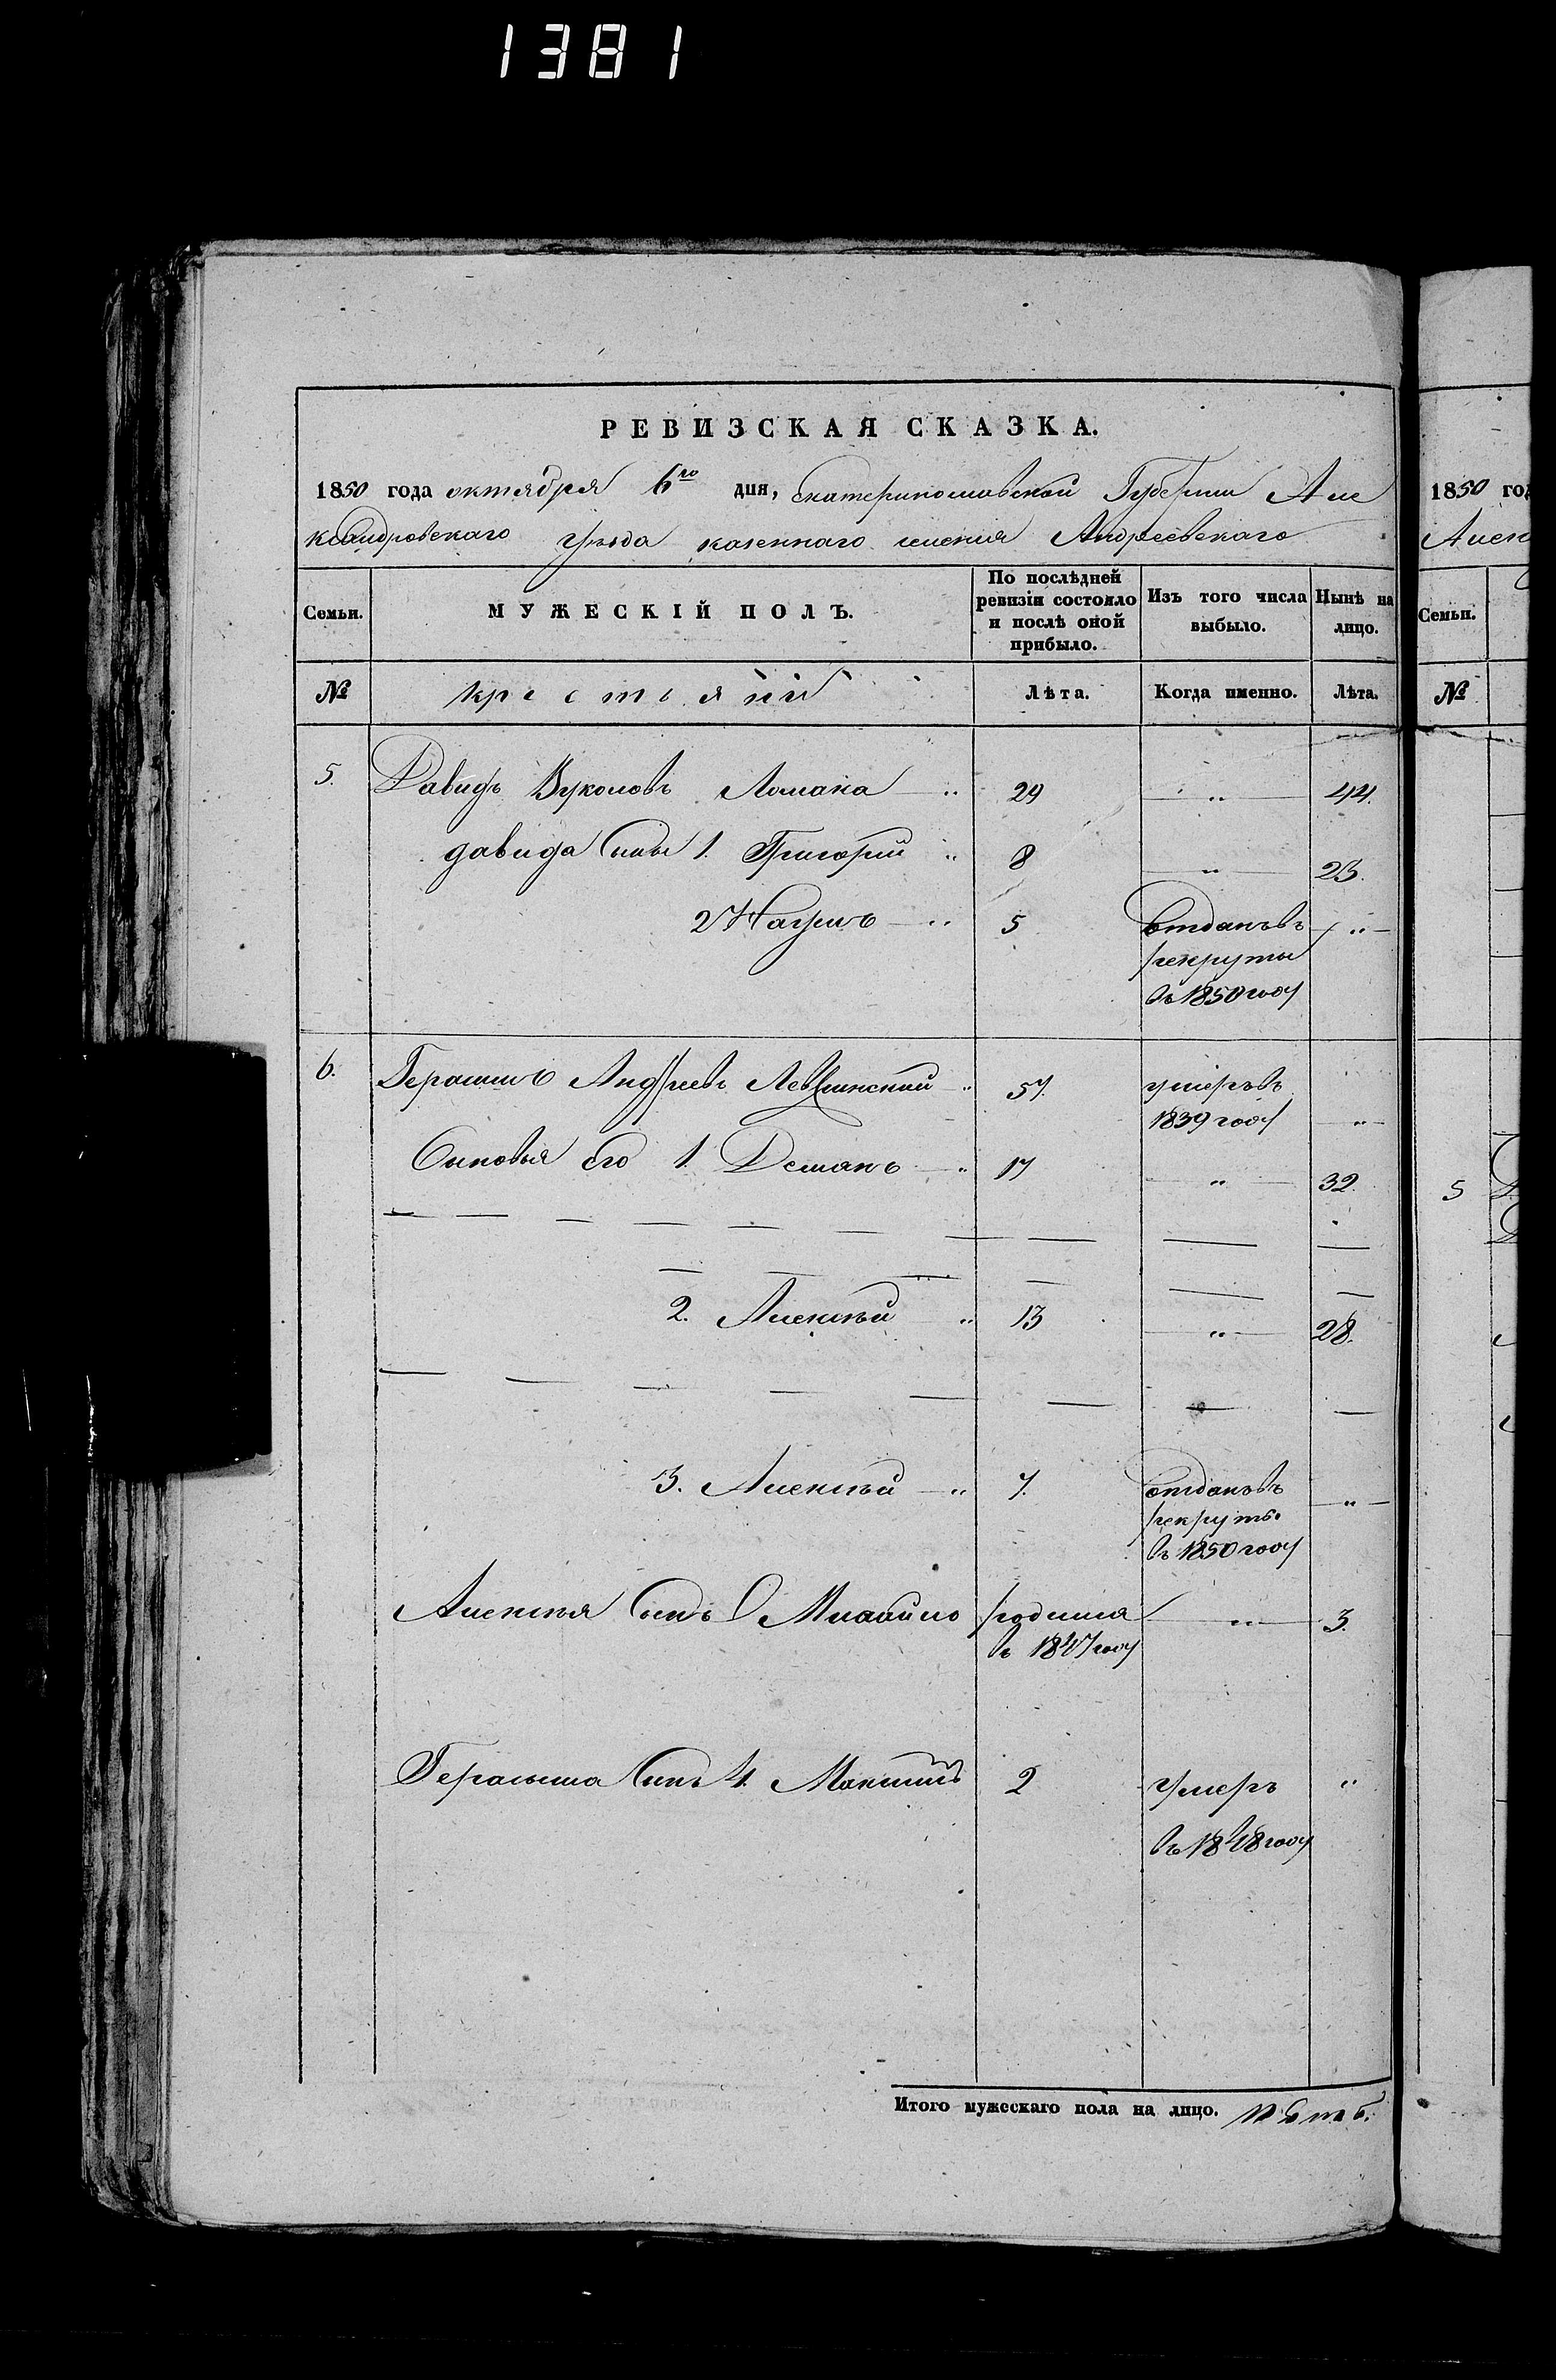 1381
РЕВИЗСКАЯ СКАЗКА.
1850 года октября 6го дня, Екатеринославской Губернии Але
ксандровского уезда казенного селения Андреевского
Семьи. МУЖЕСКІЙ ПОЛЪ. По послѣдней ревизіи состояло и послѣ оной прибыло. Изъ того числа выбыло. Нынѣ на лицо.
№ крестьяне Лѣта. Когда именно. Лѣта.
5. Давидъ Вуколовъ Ломака 29 " 44.
давида Сыны 1. Григорий " 8 " 23.
2 Наумъ " 5 отданъ въ "
рекруты
въ 1850 году
6. Герасимъ Андреевъ 57. умеръ въ
1839 году "
Сыновья его 1. Демянъ " 17 " 32.
2. Алексѣй " 13 " 28.
3. Алексѣй " 7. отданъ въ "
рекруты
въ 1850 году
Алексѣя Сынъ Михайло родился " 3.
въ 1847 году
Герасима Сынъ 4. Максимъ 2 умеръ "
въ 1848 году
Итого мужескаго пола на лицо. пять.
1850 год
Алек
Семьи.
№
5